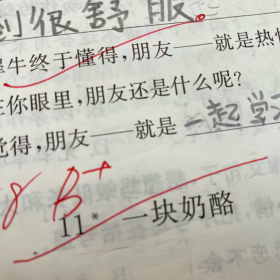 到很舒服。
犀牛终于懂得,朋友——就是热情
在你眼里,朋友还是什么呢?
觉得,朋友——就是一起学习
8 B+
11* 一块奶酪